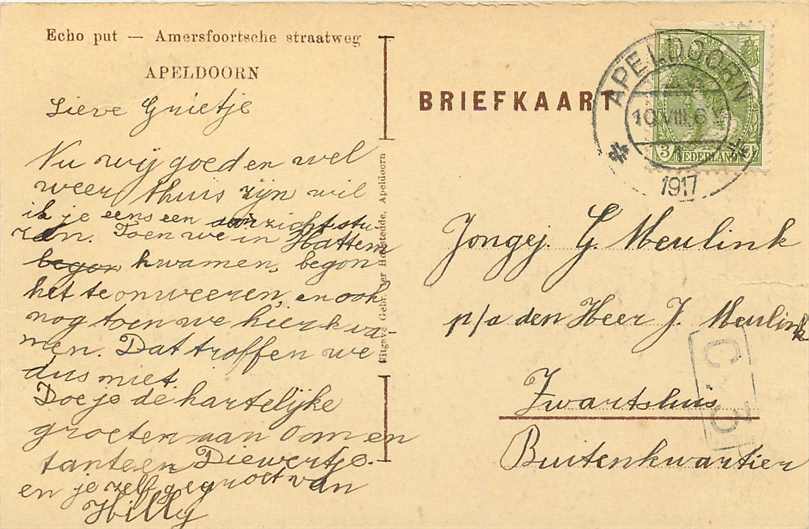 Echo put — Amersfoortsche straatweg
APELDOORN
Lieve Grietje
Nu wij goed en wel
weer thuis zijn wil
ik je eens een aanzicht stu-
ren. Toen we in Hattem
begon kwamen, begon
het te onweeren, en ook
nog toen we hier kwa-
men. Dat troffen we
dus niet.
Doe je de hartelijke
groeten aan Oom en
tante en Diewertje.
en je zelf gegroet van
Hilly
Uitgave Gebr. van der Apeldoorn
BRIEFKAART
APELDOORN
10 VIII 6
1917
3
NEDERLAND
Jongej. G. Meulink
p/a den Heer J. Meulink
Zwartsluis
Buitenkwartier
C. 3